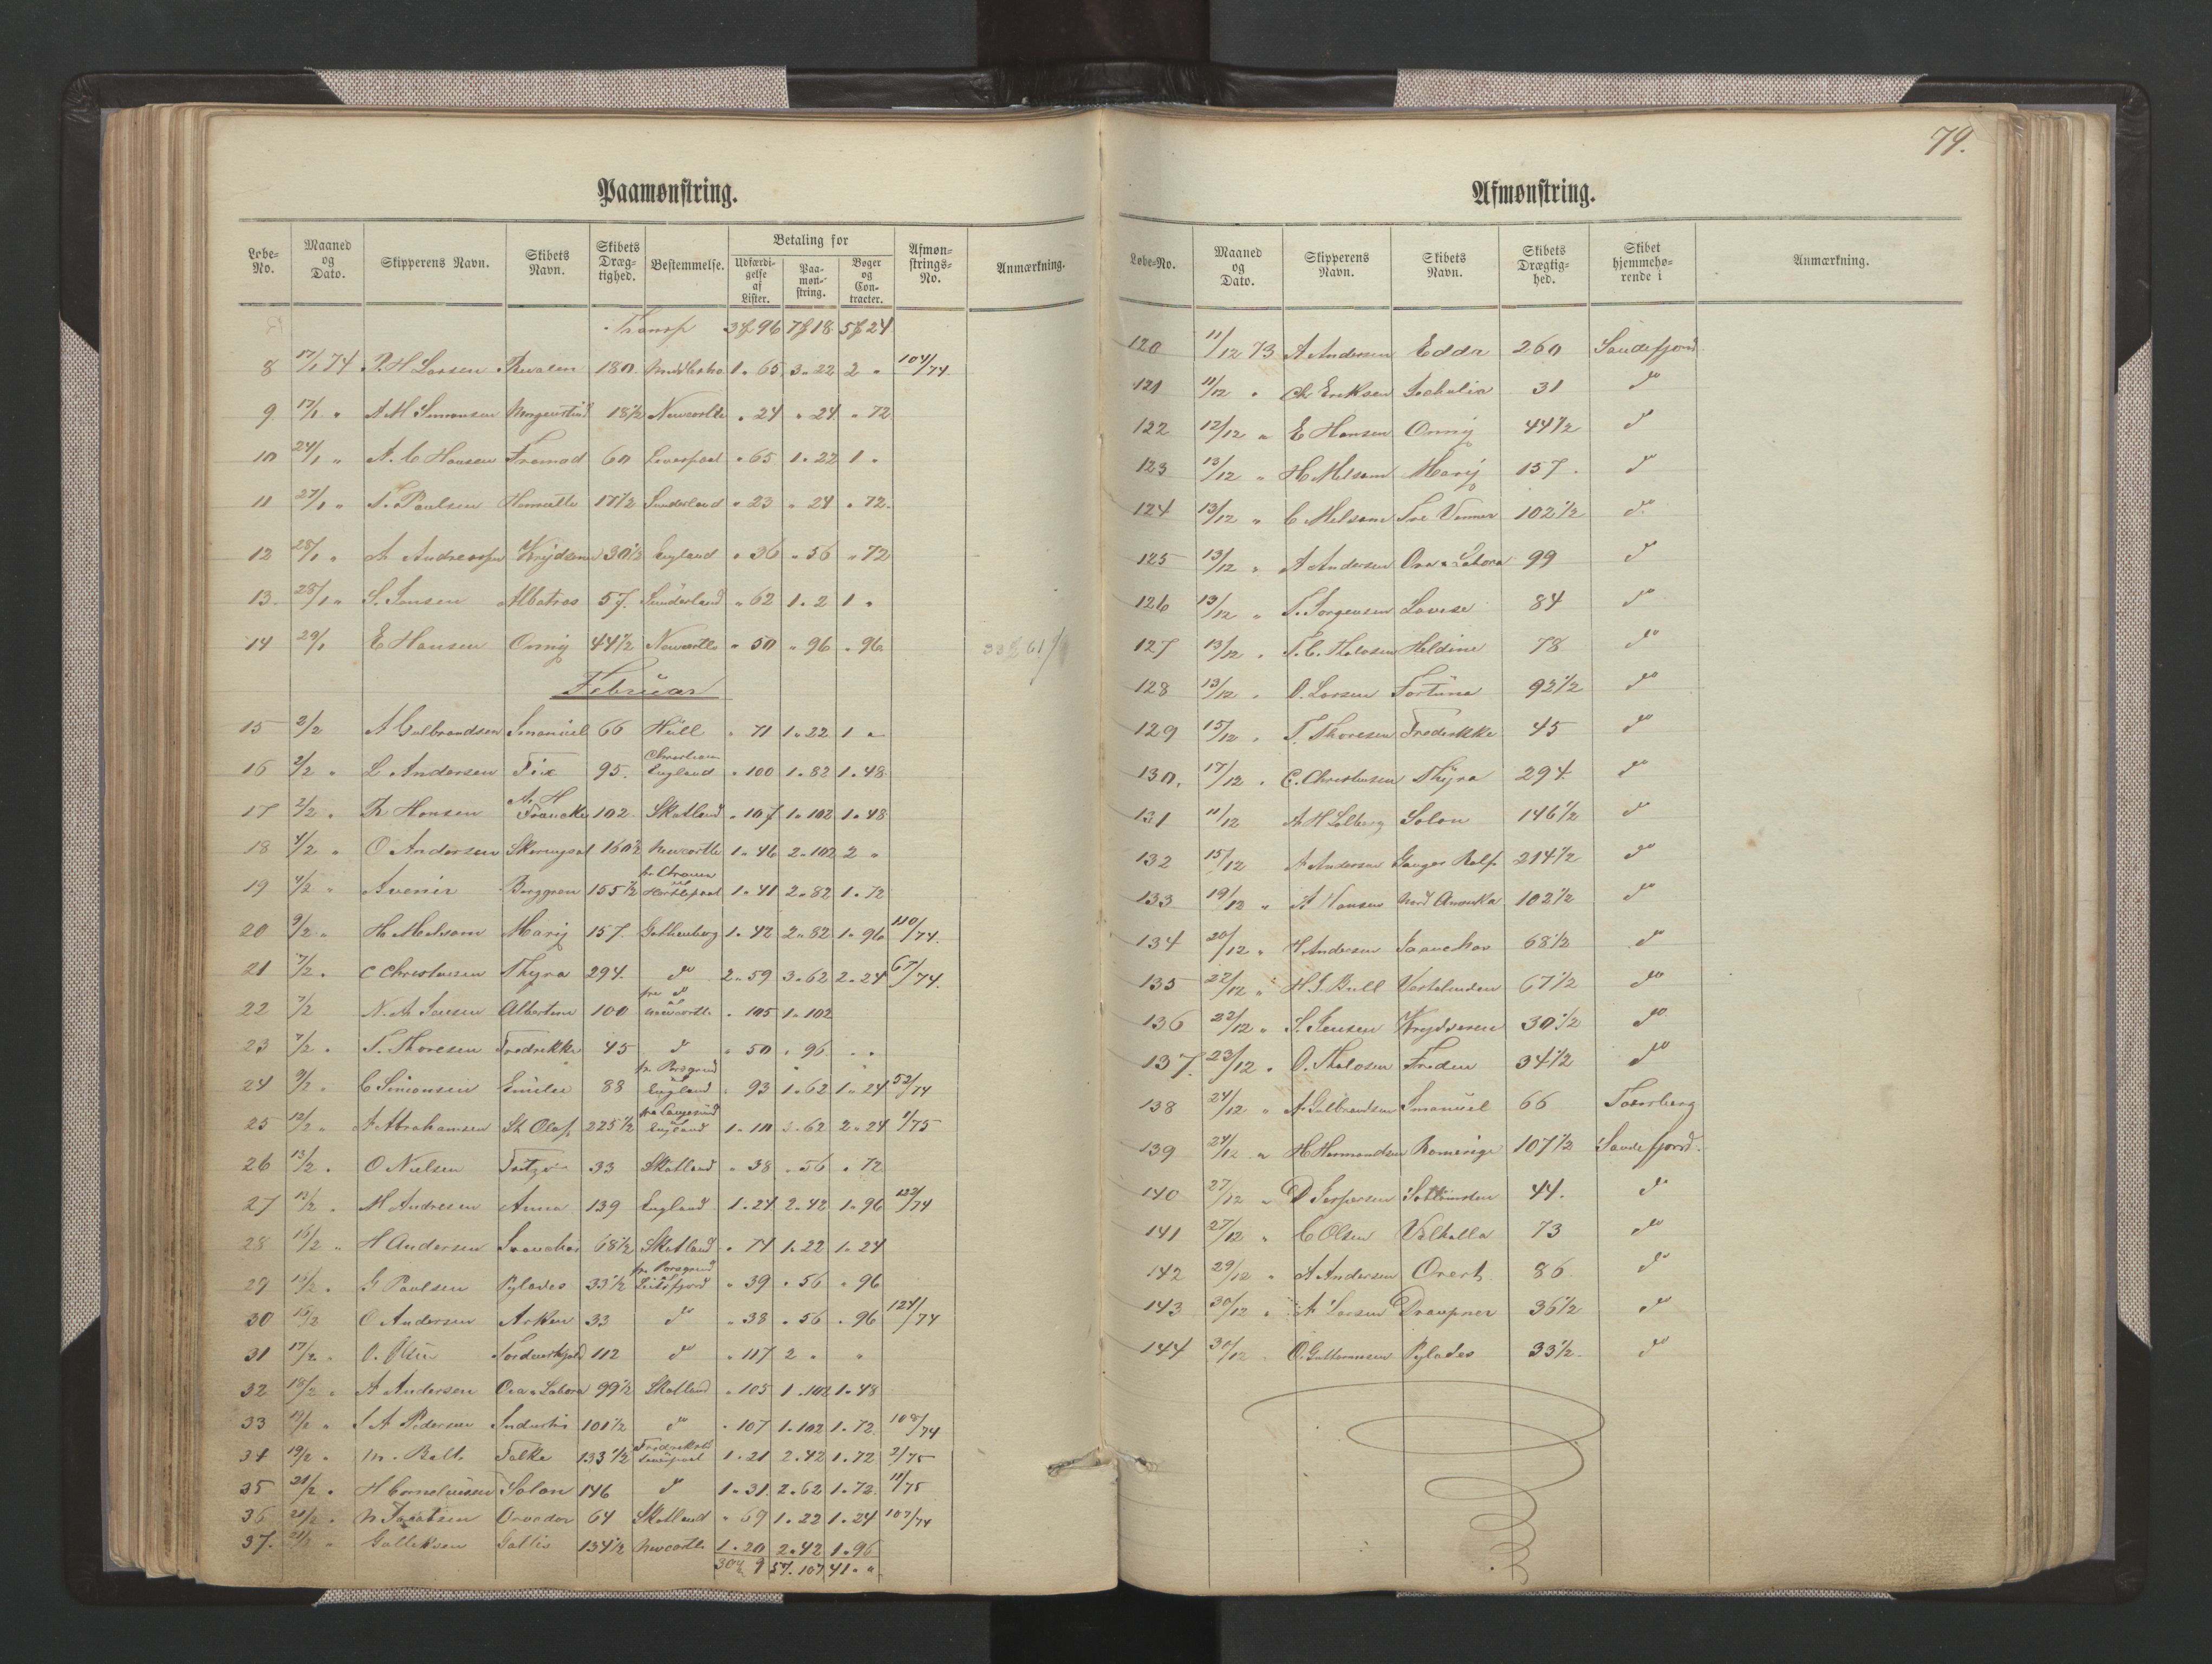 79.
Paamønstring.
Løbe-No. Maaned og Dato. Skipperens Navn. Skibets Navn. Skibets Dræg-tighed. Bestemmelse. Betaling for Udfærdi-gelse af Lister. Paa-møn-string. Bøger og Con-tracter. Afmøn-strings-No. Anmærkning.
Transp 3 96 7 18 5 24
8 17/1 74 P. H. Larsen 180 1 " 65 3 " 22 2 " 104/74
9 17/1 " A M Simonsen Morgenstind 18 1/2 Newcastle " 24 " 24 " 72
10 24/1 " A. C Hansen Fremad 60 Liverpool " 65 1 " 22 1 "
11 27/1 " T. Paulsen Henriette 17 1/2 Sunderland " 23 " 24 " 72
12 28/1 " Krydseren 30 1/2 England " 36 " 56 " 72
13 28/1 " S. Jansen Albatros 57 Sunderland " 62 1 " 2 1 "
14 29/1 E Hansen Onny 44 1/2 Newcastle " 50 " 96 " 96
Februar
15 2/2 A Gulbrandsen Imanuel 66 Hull " 71 1 " 22 1 "
16 2/2 " L Andersen Fix 95 England " 100 1 " 82 1 " 48
17 2/2 " Hansen A. H Francke 102 Skotland " 107 1 " 102 1 " 48
18 4/2 " O Andersen Skiringsal 160 1/2 Newcastle 1 " 46 2 " 102 2 "
19 4/2 " Avenir Berggren 155 1/2 Hartlepool 1 " 41 2 " 82 1 " 72
20 9/2 " H Melsom Mary 157 Gothenborg 1 " 42 2 " 82 1 " 96 110/74
21 7/2 " C Christensen Thyra 294 do 2 " 59 3 " 62 2 " 24 67/74
22 7/2 N. A Jensen Albertine 100 fra do til Newcastle " 105 1 " 102
23 7/2 " T. Thoresen Fredrikke 45 do " 50 " 96 " "
24 9/2 " C Simonsen Emilie 88 fra Porsgrund til England " 93 1 " 62 1 " 24 52/74
25 12/2 " A Abrahamsen St Olaf 225 1/2 fra Langesund til England 1 " 110 3 " 62 2 " 24 1/75
26 13/2 " O Nielsen 33 Skotland " 38 " 56 " 72
27 13/2 " M Andresen Anna 139 England 1 " 24 2 " 42 1 " 96 132/74
28 16/2 " H Andersen 68 1/2 Skotland " 74 1 " 22 1 " 24
29 16/2 " G Paulsen Pylades 33 1/2 fra Porsgrund til " 39 " 56 " 96
30 15/2 O Andersen Arken 33 do " 38 " 56 " 96 124/74
31 17/2 " O. Olsen Tordenskjold 112 do " 117 2 " "
32 18/2 " A Andersen Ora & Labora 99 1/2 Skotland " 105 1 " 102 1 " 48
33 19/2 " J A Pedersen Industri 101 1/2 do " 107 1 " 102 1 " 72 108/74
34 19/2 " M. Falke 133 1/2 Liverpool 1 " 21 2 " 42 1 " 72 2/75
35 21/2 " H Corneliussen Solon 146 do 1 " 31 2 " 62 1 " 72 11/75
36 21/2 " N Jacobsen 64 Skotland " 69 1 " 22 1 " 24 107/74
37 21/2 " Gulliksen 134 1/2 Newcastle 1 " 20 2 " 42 1 " 96
30 9 57 107 41 " "
Afmønstring.
Løbe-No. Maaned og Dato. Skipperens Navn. Skibets Navn. Skibets Drægtig-hed. Skibet hjemmehø-rende i Anmærkning.
120 11/12 73 A Andersen Edda 260 Sandefjord
121 11/12 " Chr Eriksen 31 do
122 12/12 " E Hansen Onny 44 1/2 do
123 13/12 " H Melsom Mary 157 do
124 13/12 " C Melsom Tre Venner 102 1/2 do
125 13/12 " A Andersen Ora & Labora 99 do
126 13/12 " T. Jørgensen Lovise 84 do
127 13/12 " Heldine 78 do
128 13/12 " O. Larsen Fortuna 92 1/2 do
129 15/12 " T. Thoresen Fredrikke 45 do
130 17/12 " C. Christensen Thyra 294 do
131 11/12 A H Solberg Solon 146 1/2 do
132 15/12 A Andersen Ganger Rolf 214 1/2 do
133 19/12 " A Hansen Nord Amerika 102 1/2 do
134 20/12 " H Andersen 68 1/2 do
135 22/12 " H. J. Bull Vestalinden 67 1/2 do
136 22/12 " S. Jensen Krydseren 30 1/2 do
137 23/12 " O. Freden 34 1/2 do
138 24/12 " A Gulbrandsen Imanuel 66 Tønsberg
139 24/12 " H Hermandsen Romerige 107 1/2 Sandefjord
140 27/12 " D Jespersen 44 do
141 27/12 " C Olsen Valhalla 73 do
142 29/12 " A Andersen 86 do
143 30/12 " A Larsen Draupner 36 1/2 do
144 30/12 O. Guttormsen Pylades 33 1/2 do